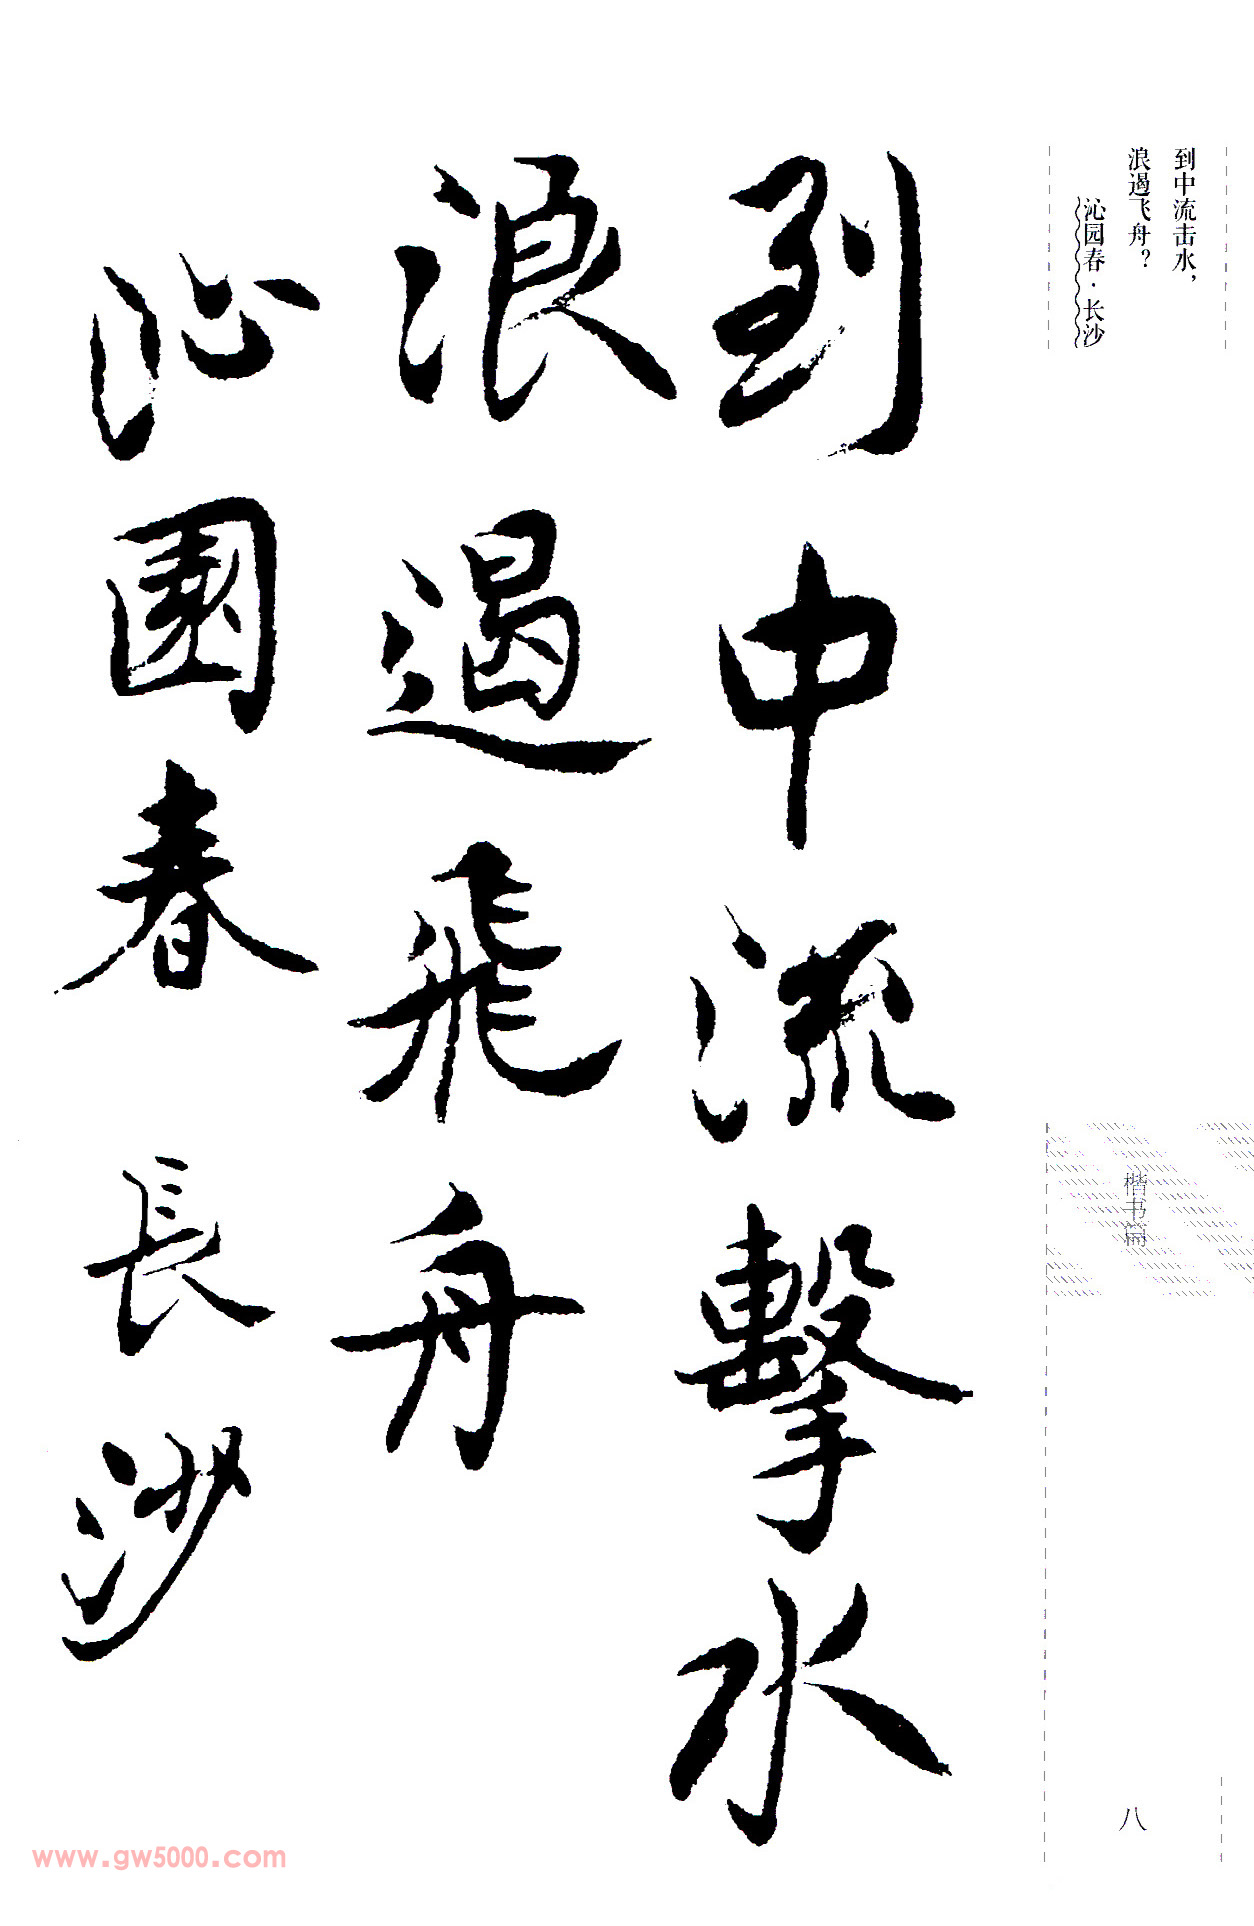 到中流击水，
浪遏飞舟？
沁园春·长沙
到中流擊水
浪遏飛舟
沁園春 長沙
楷书篇
八
www.gw5000.com